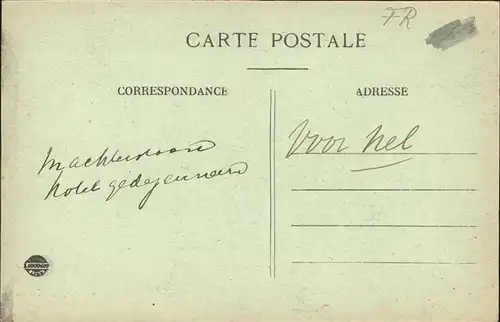 FR
CARTE POSTALE
CORRESPONDANCE
ADRESSE
Voor Nel
hotel gedejeuneerd